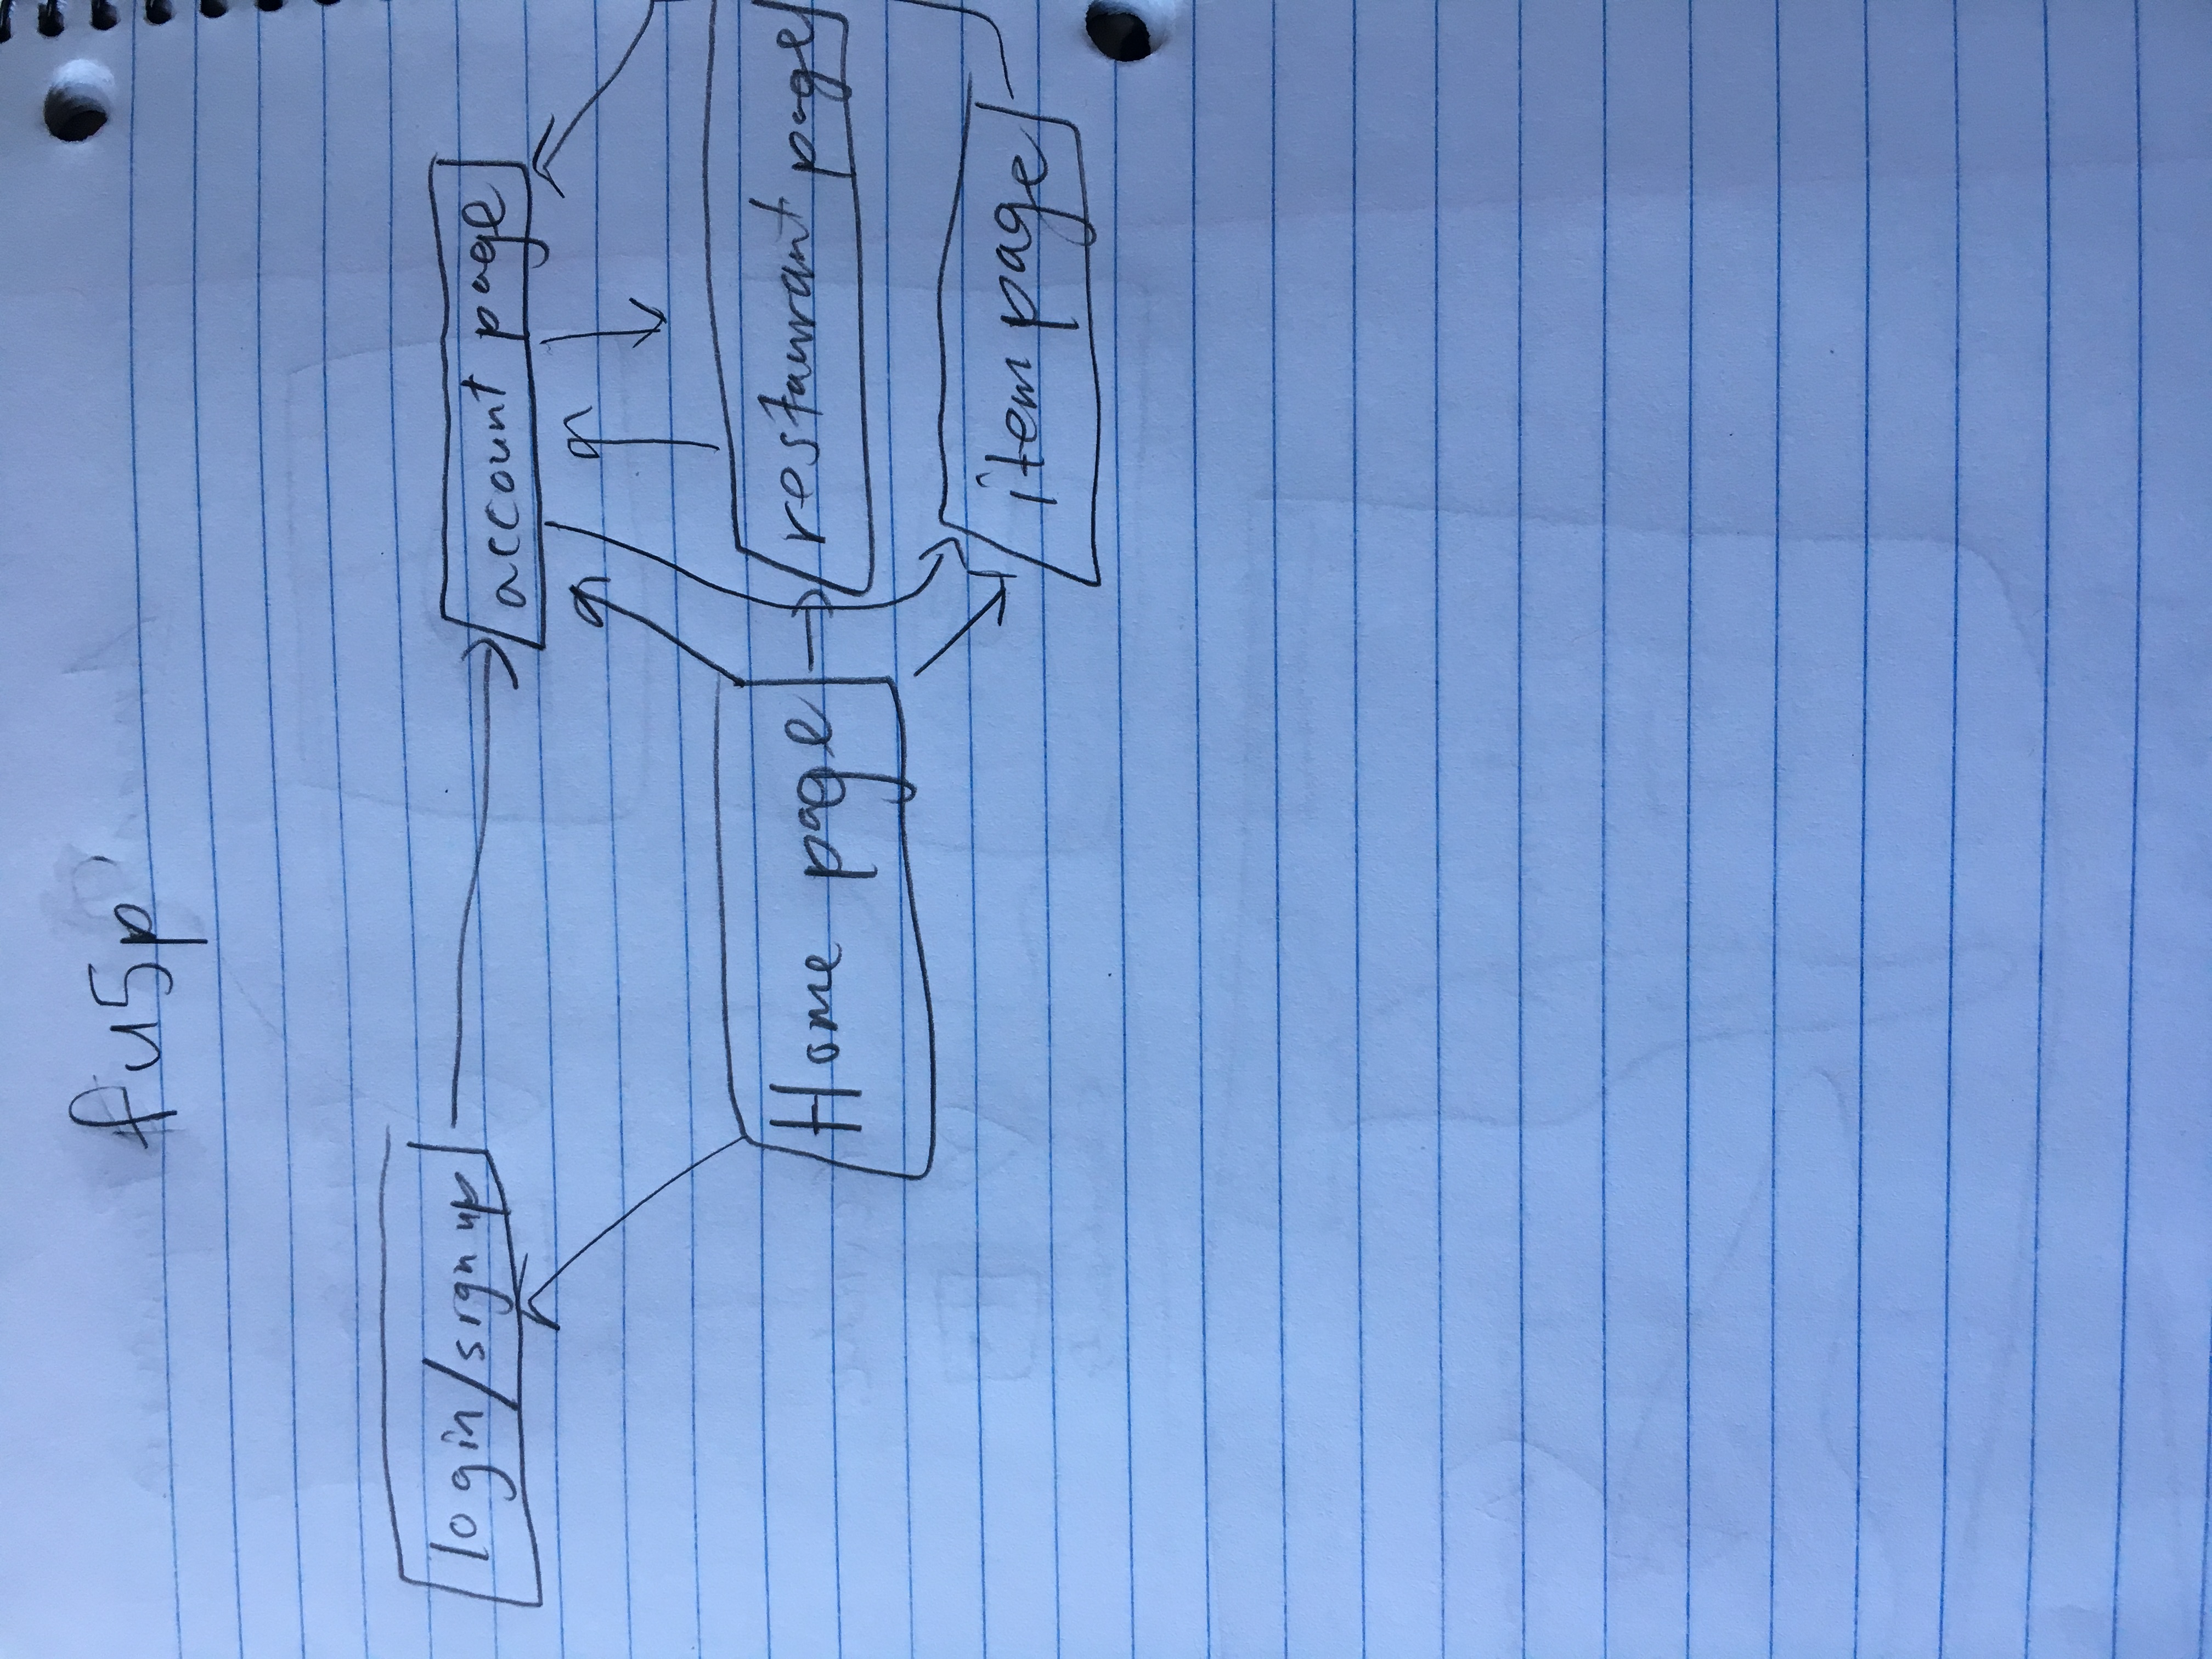 fu5p
login/sign up
account page
Home page
restaurant page
item page